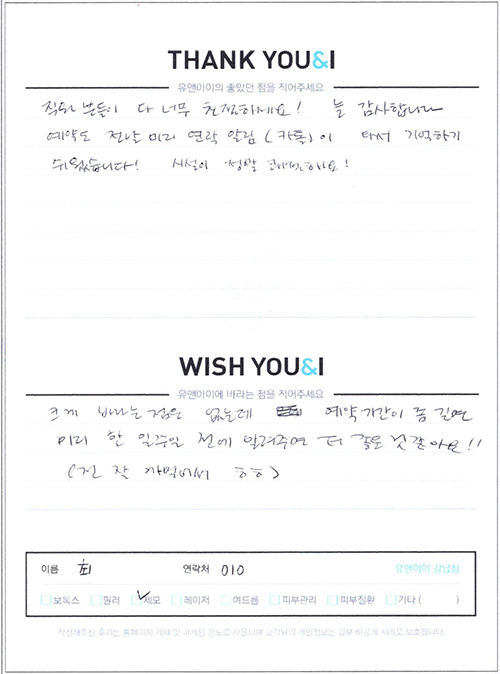 THANK YOU&I
유앤아이의 좋았던 점을 적어주세요
직원 분들이 다 너무 친절하세요! 늘 감사합니다
예약도 전날 미리 연락 알림(카톡)이 와서 기억하기
쉬웠습니다! 시설이 정말 깨끗해요!
WISH YOU&I
유앤아이에 바라는 점을 적어주세요
크게 바라는 점은 없는데 예약 기간이 좀 길면
미리 한 일주일 전에 알려주면 더 좋을 것 같아요!!
(전 잘 까먹어서 ㅎㅎ)
이름 최 연락처 010 유앤아이 강남점
보톡스 필러 제모 레이저 여드름 피부관리 피부질환 기타 ( )
작성해주신 후기는 홈페이지 게재 및 마케팅 용도로 사용되며 고객님의 개인정보는 일부 비공개 처리로 보호됩니다.